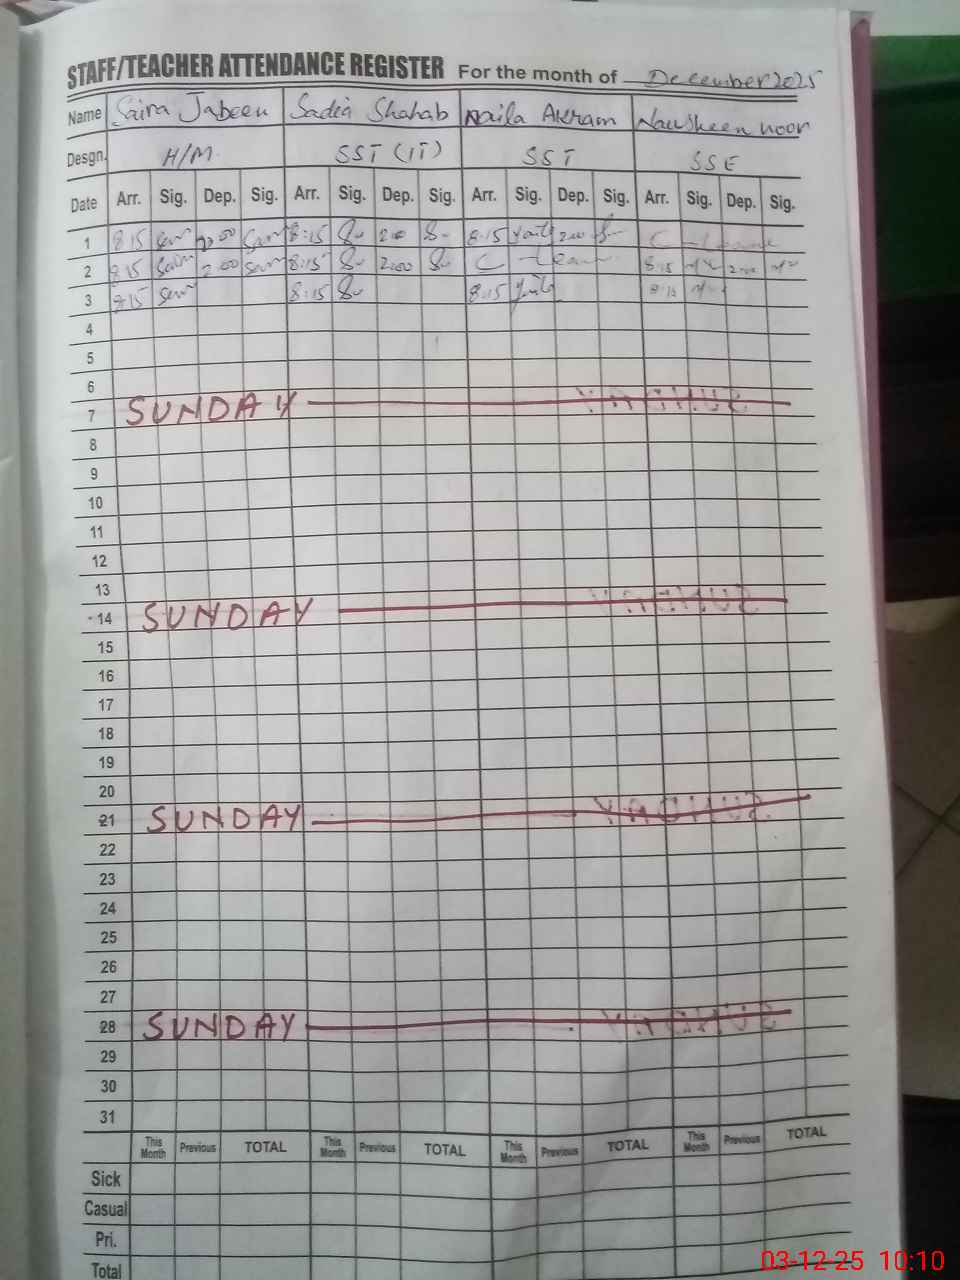 STAFF/TEACHER ATTENDANCE REGISTER For the month of December 2025
Name Saira Jabeen Sadia Shahab Naila Akram Nausheen noor
Desgn. H/M. SST (IT) SST SSE
Date Arr. Sig. Dep. Sig. Arr. Sig. Dep. Sig. Arr. Sig. Dep. Sig. Arr. Sig. Dep. Sig.
1 8:15 2:00 8:15 2:00 8:15 2:00 C - Leave
2 8:15 2:00 8:15 2:00 C - Leave 8:15 2:00
3 8:15 8:15 8:15 8:15
4
5
6
7 SUNDAY
8
9
10
11
12
13
14 SUNDAY
15
16
17
18
19
20
21 SUNDAY
22
23
24
25
26
27
28 SUNDAY
29
30
31
This Month Previous TOTAL This Month Previous TOTAL This Month Previous TOTAL This Month Previous TOTAL
Sick
Casual
Pri.
Total
03-12-25 10:10